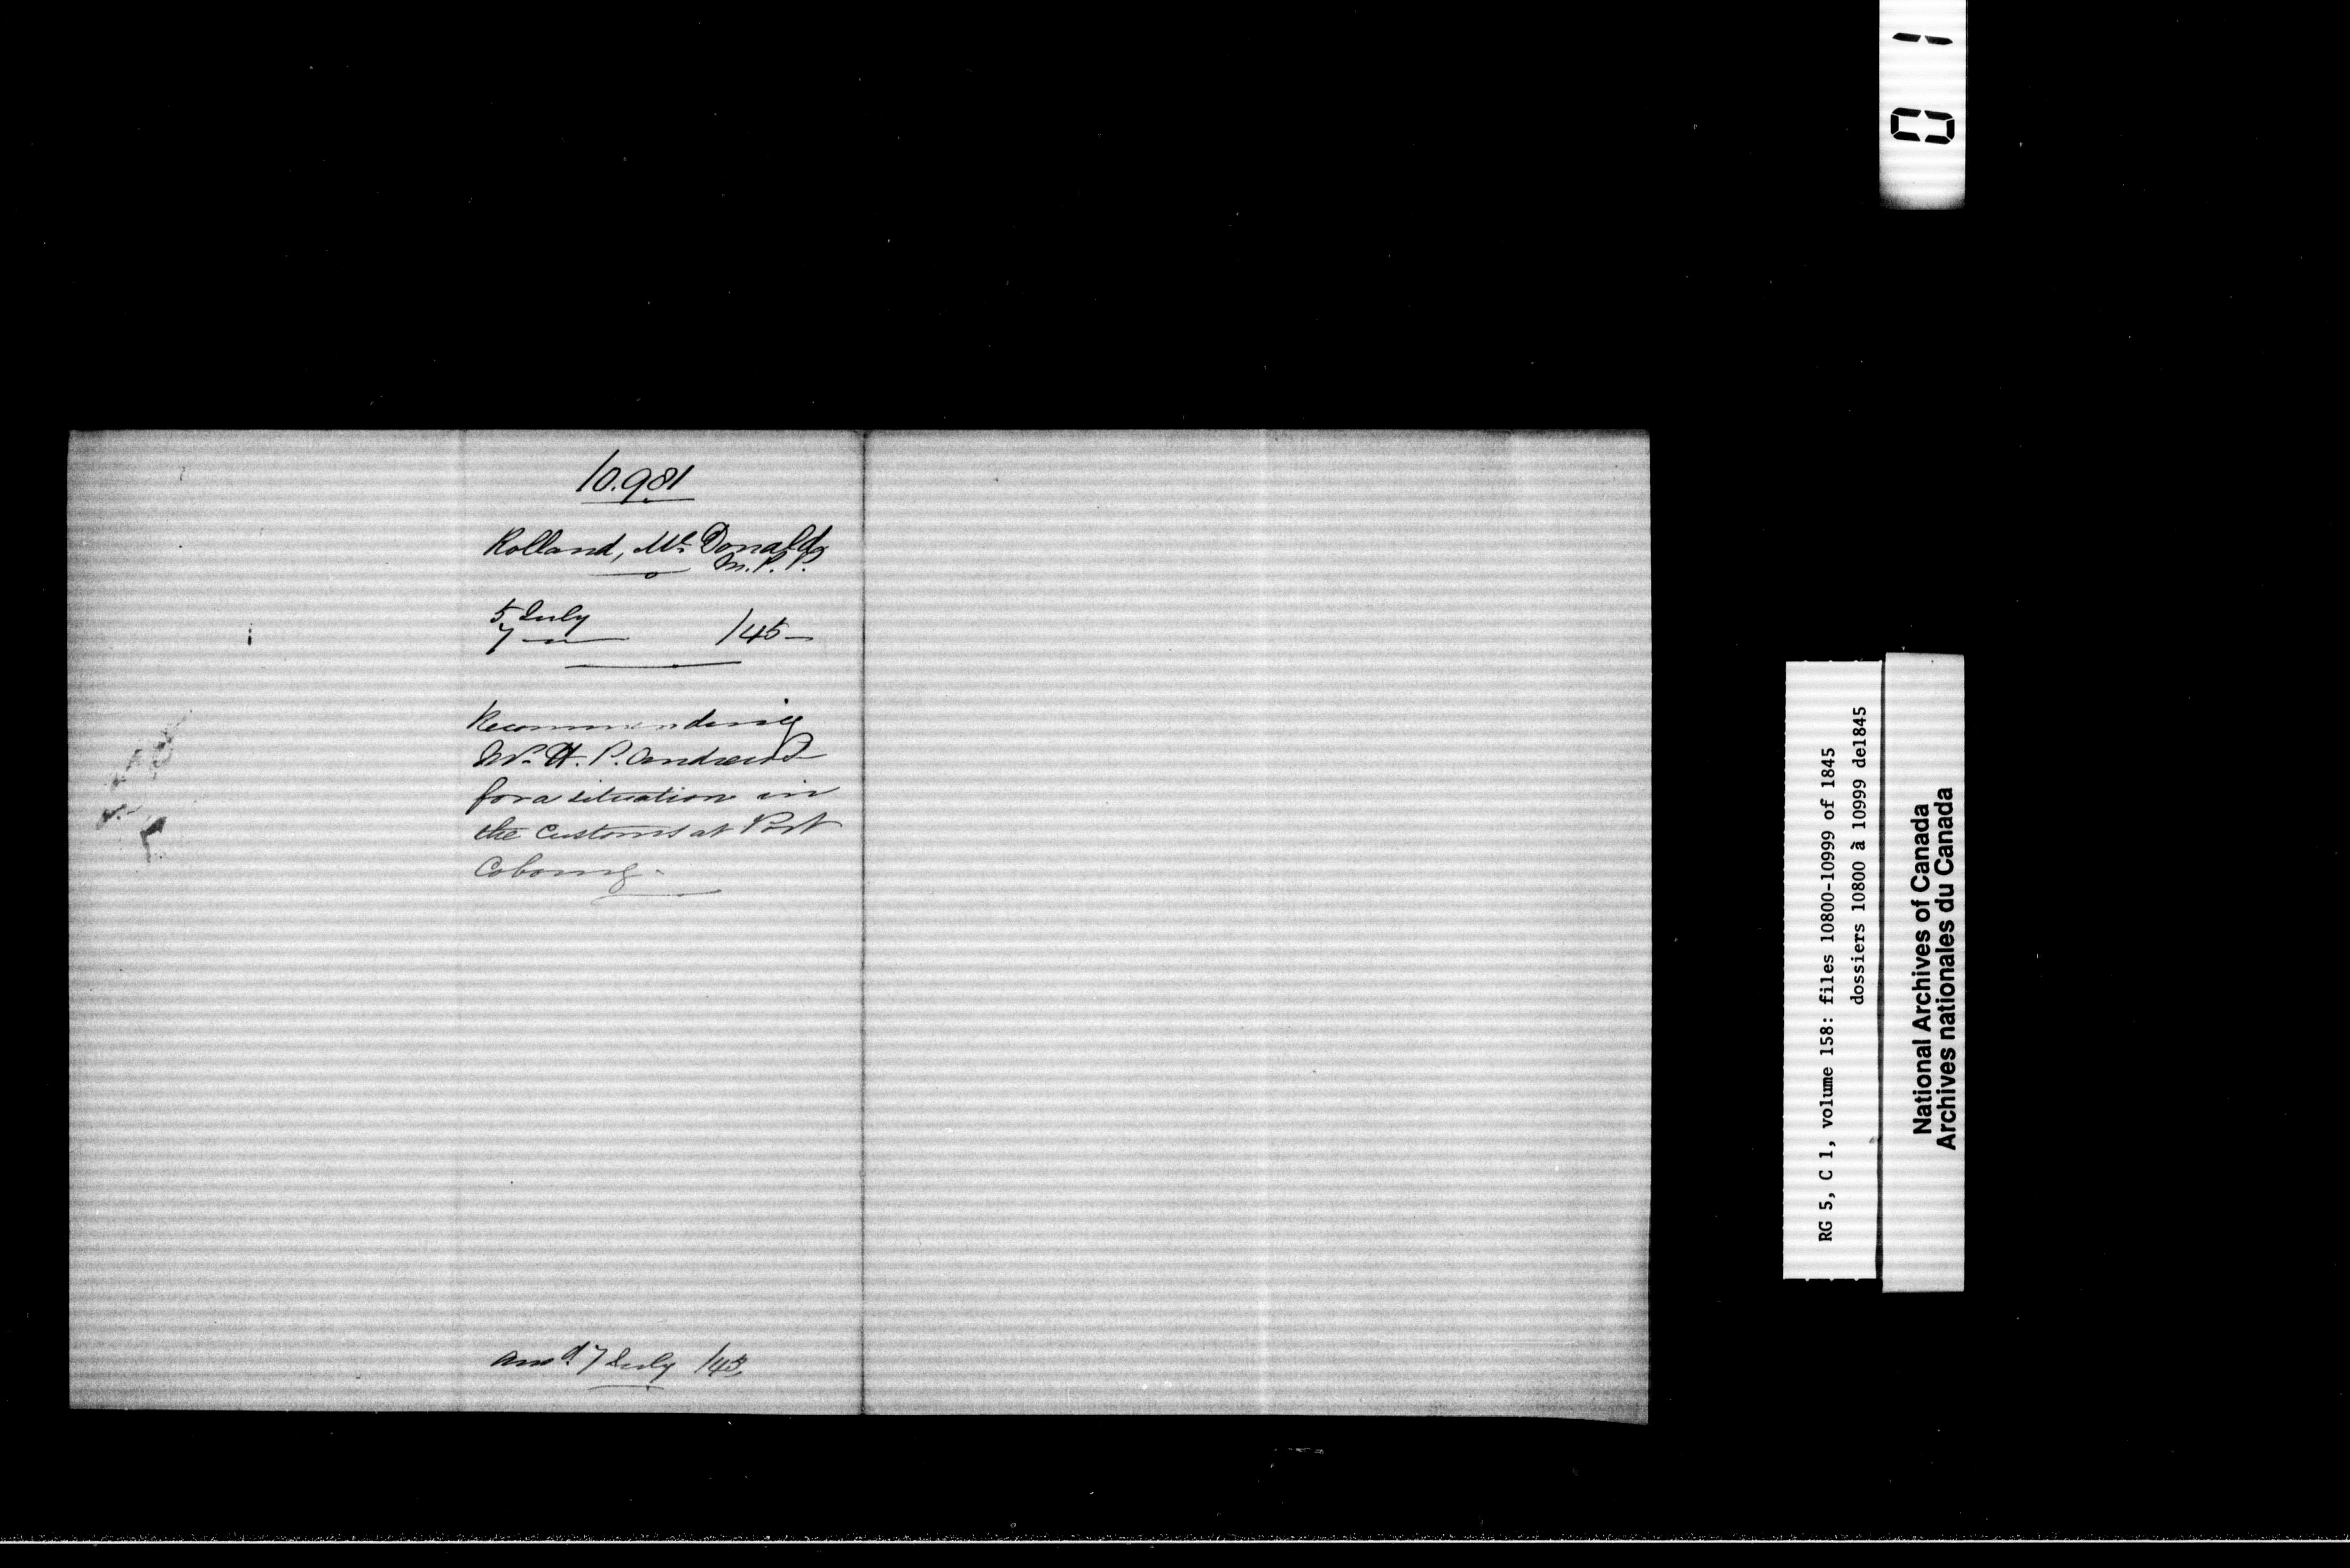 10.981
Rolland, Mc. Donald,
M.P.P.
5 July
7 — /45 —
Recommending
Mr. H. P. Andrews
for a situation in
the Customs at Port
Cobourg.
ansd. 7 July /45
01
RG 5, C 1, volume 158: files 10800-10999 of 1845
dossiers 10800 à 10999 de1845
National Archives of Canada
Archives nationales du Canada